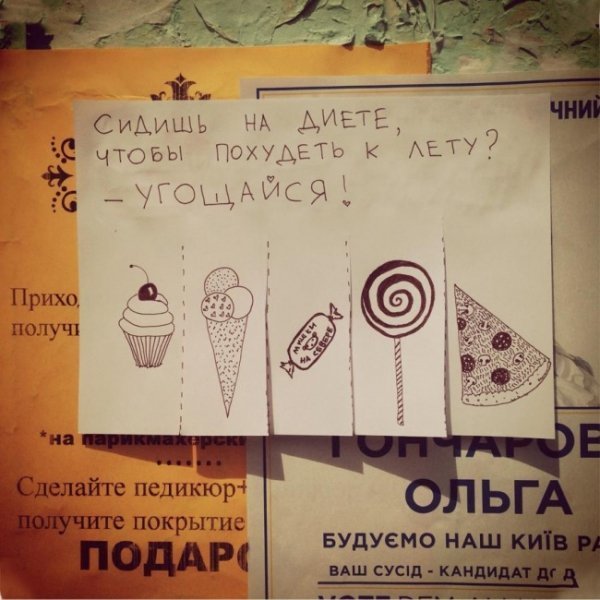 СИДИШЬ НА ДИЕТЕ,
ЧТОБЫ ПОХУДЕТЬ К ЛЕТУ?
– УГОЩАЙСЯ!
МИШКИ
НА СЕВЕРЕ
*на парикмахерски
Сделайте педикюр+
получите покрытие
ОЛЬГА
БУДУЄМО НАШ КИЇВ
ВАШ СУСІД - КАНДИДАТ